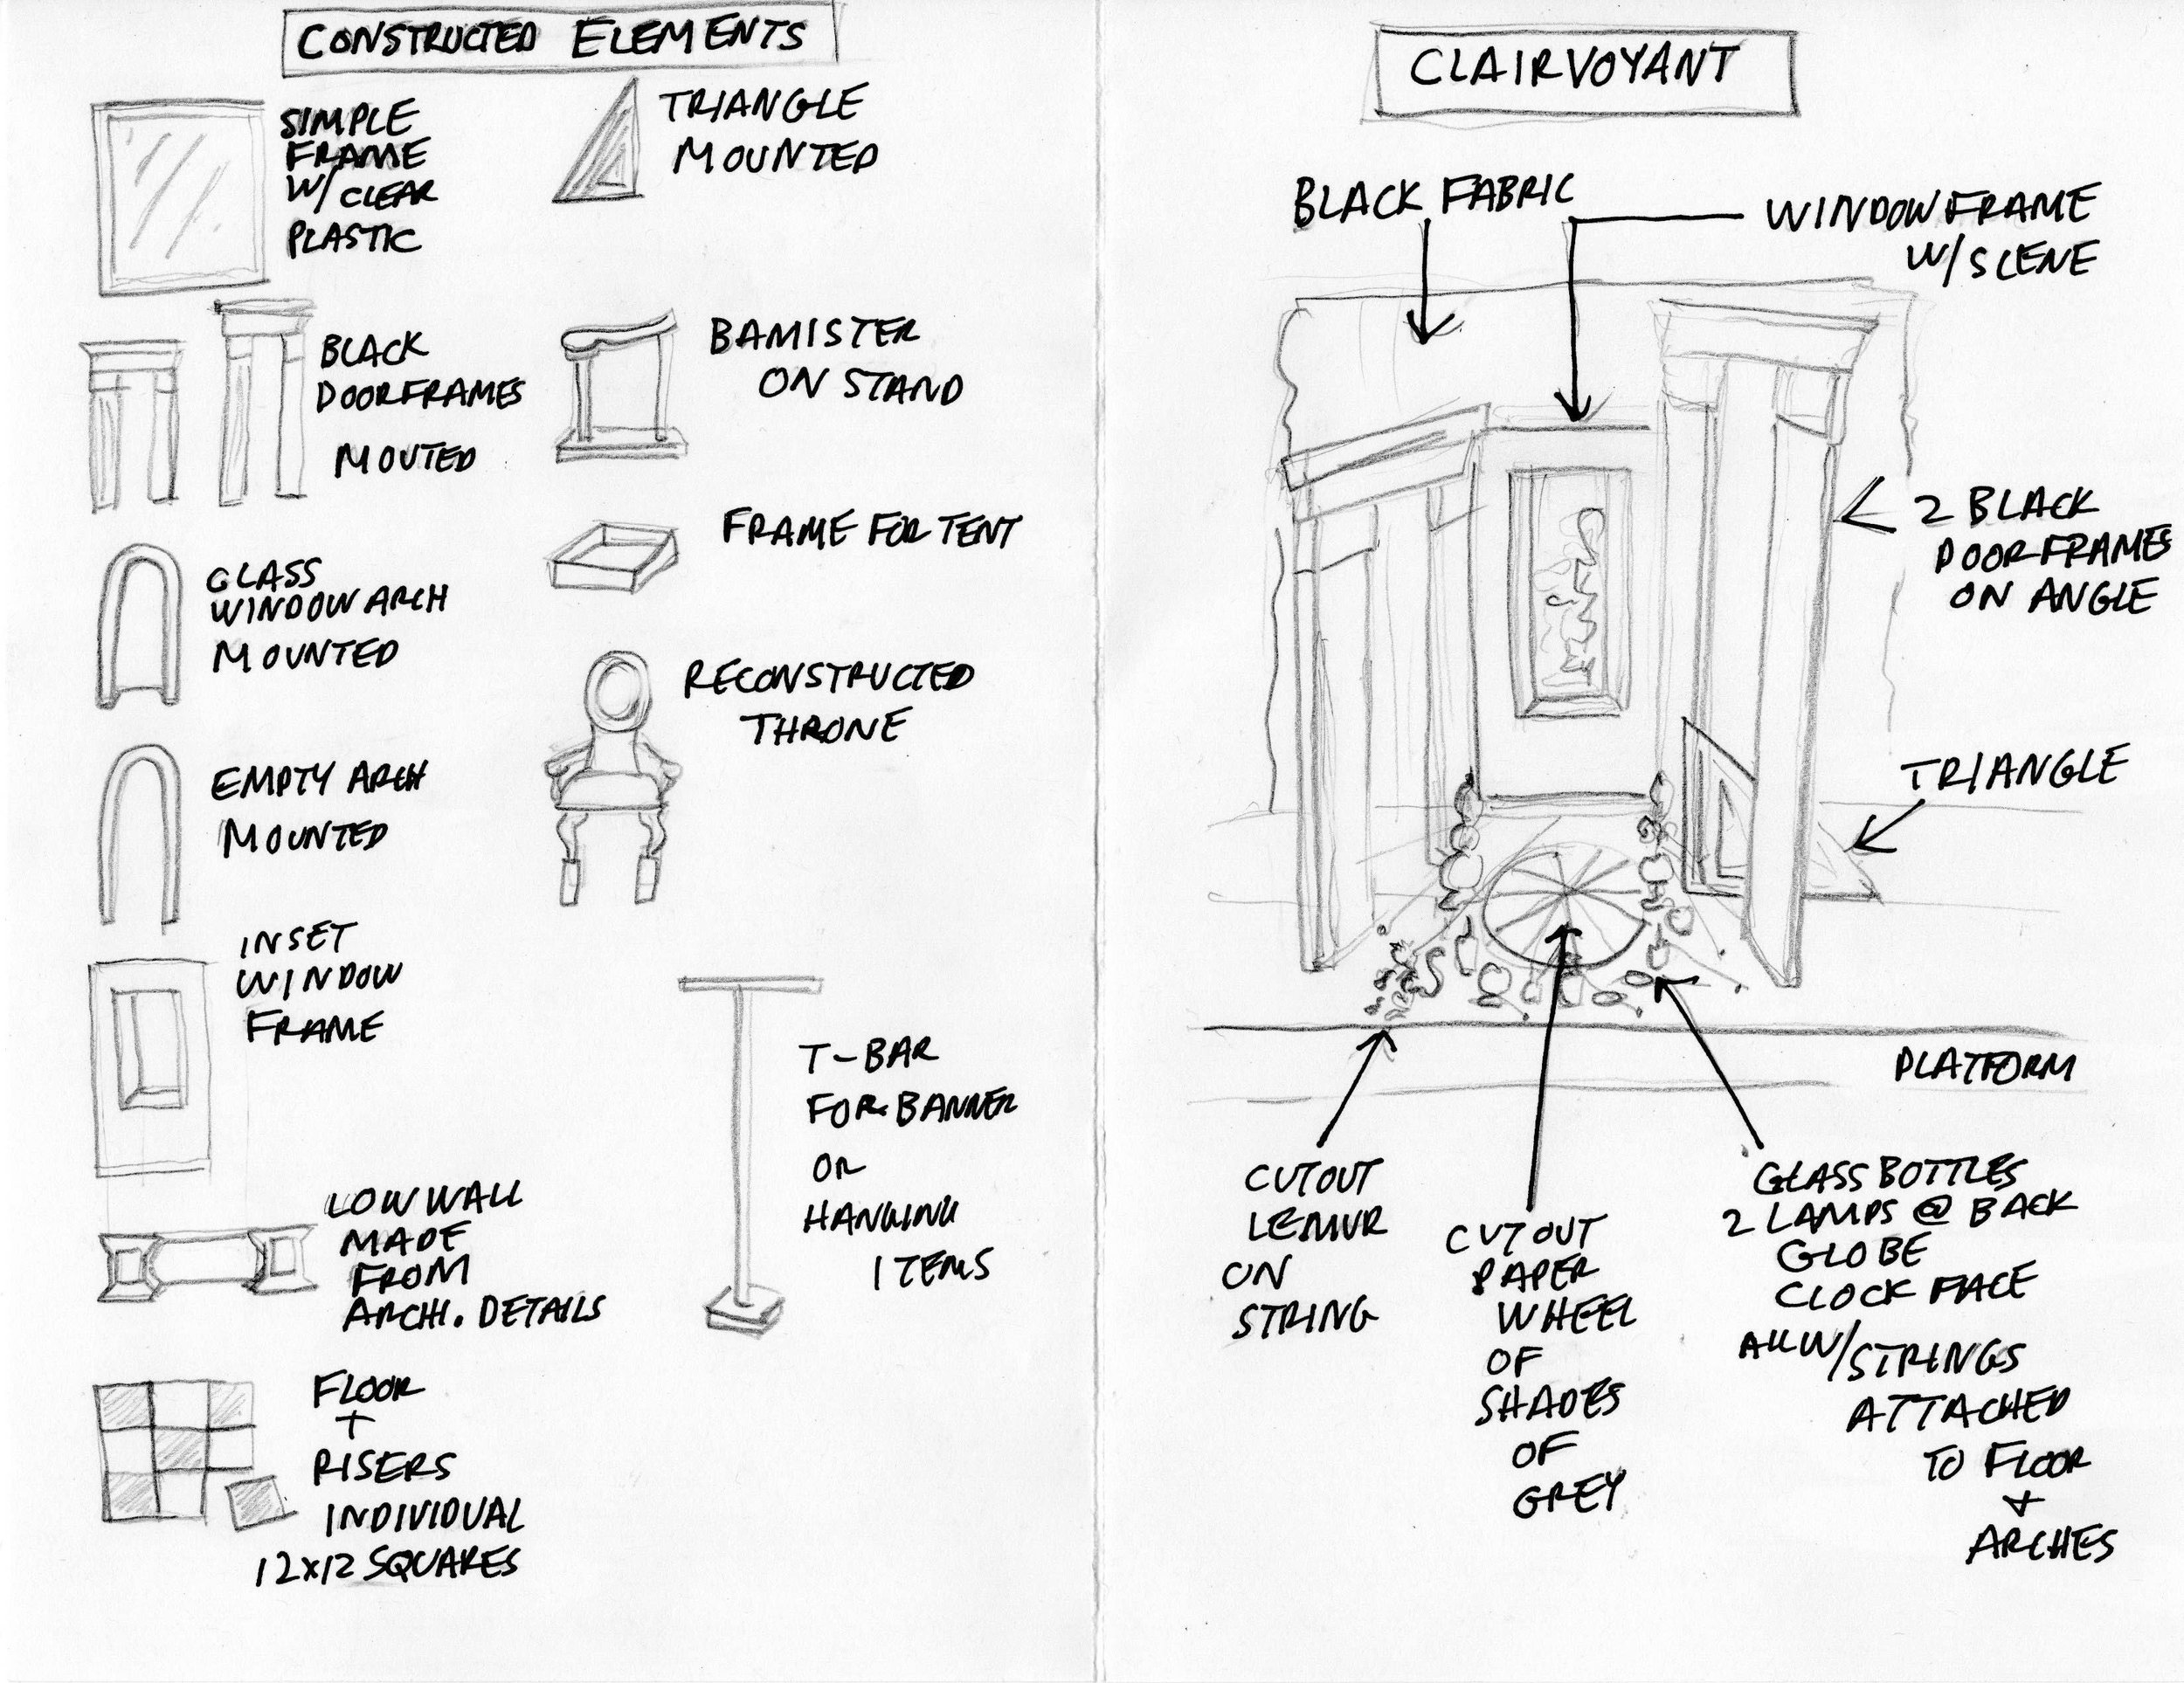 CONSTRUCTED ELEMENTS
SIMPLE
FRAME
W/ CLEAR
PLASTIC
TRIANGLE
MOUNTED
BLACK
DOORFRAMES
MOUTED
BAMISTER
ON STAND
GLASS
WINDOW ARCH
MOUNTED
FRAME FOR TENT
EMPTY ARCH
MOUNTED
RECONSTRUCTED
THRONE
INSET
WINDOW
FRAME
T-BAR
FOR BANNER
OR
HANGING
ITEMS
LOW WALL
MADE
FROM
ARCHI. DETAILS
FLOOR
+
RISERS
INDIVIDUAL
12x12 SQUARES
CLAIRVOYANT
BLACK FABRIC
WINDOW FRAME
W/ SCENE
2 BLACK
DOORFRAMES
ON ANGLE
TRIANGLE
PLATFORM
CUTOUT
LEMUR
ON
STRING
CUTOUT
PAPER
WHEEL
OF
SHADES
OF
GREY
GLASS BOTTLES
2 LAMPS @ BACK
GLOBE
CLOCK FACE
ALL W/ STRINGS
ATTACHED
TO FLOOR
+
ARCHES